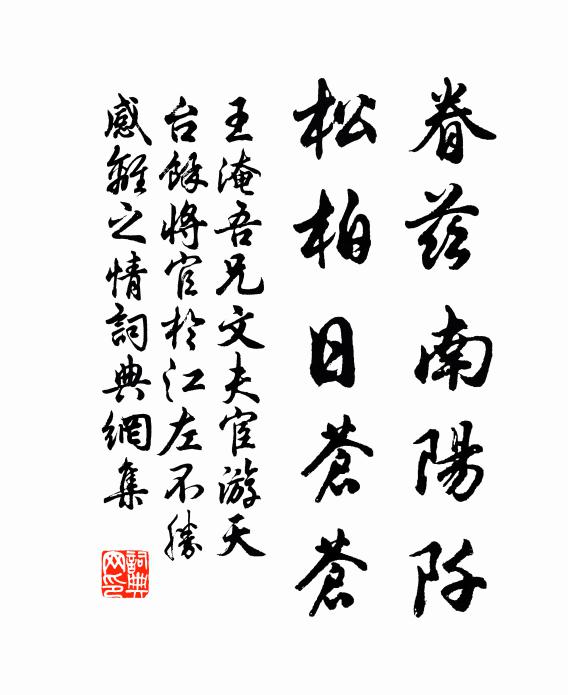 眷茲南陽阡
松柏日蒼蒼
王淹吾兄文夫宦游天
台餘將官於江左不勝
感離之情詞典網集
詞典
网印